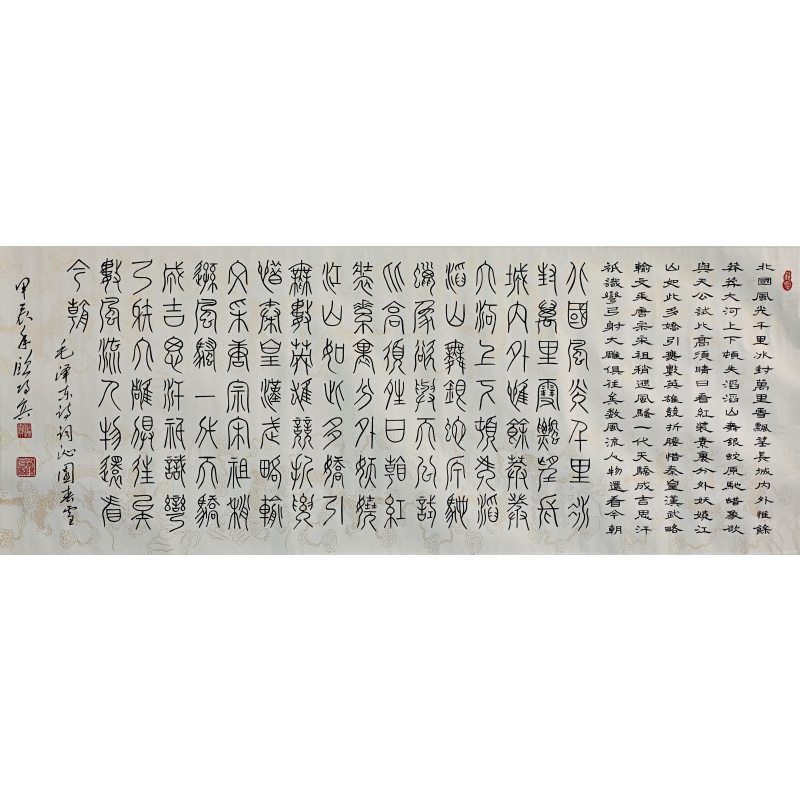 北國風光千里冰封萬里雪飄望長城内外惟餘
莽莽大河上下頓失滔滔山舞銀蛇原馳蜡象欲
與天公試比高須晴日看紅裝素裹分外妖嬈江
山如此多嬌引無數英雄競折腰惜秦皇漢武略
輸文采唐宗宋祖稍遜風騷一代天驕成吉思汗
祇識彎弓射大雕俱往矣數風流人物還看今朝
北國風光千里冰
封萬里雪飄望長
城内外惟餘莽莽
大河上下頓失滔
滔山舞銀蛇原馳
蠟象欲與天公試
比高須晴日看紅
裝素裹分外妖嬈
江山如此多嬌引
無數英雄競折腰
惜秦皇漢武略輸
文采唐宗宋祖稍
遜風騷一代天驕
成吉思汗祇識彎
弓射大雕俱往矣
數風流人物還看
今朝
毛澤东詩词沁園春雪
甲辰年